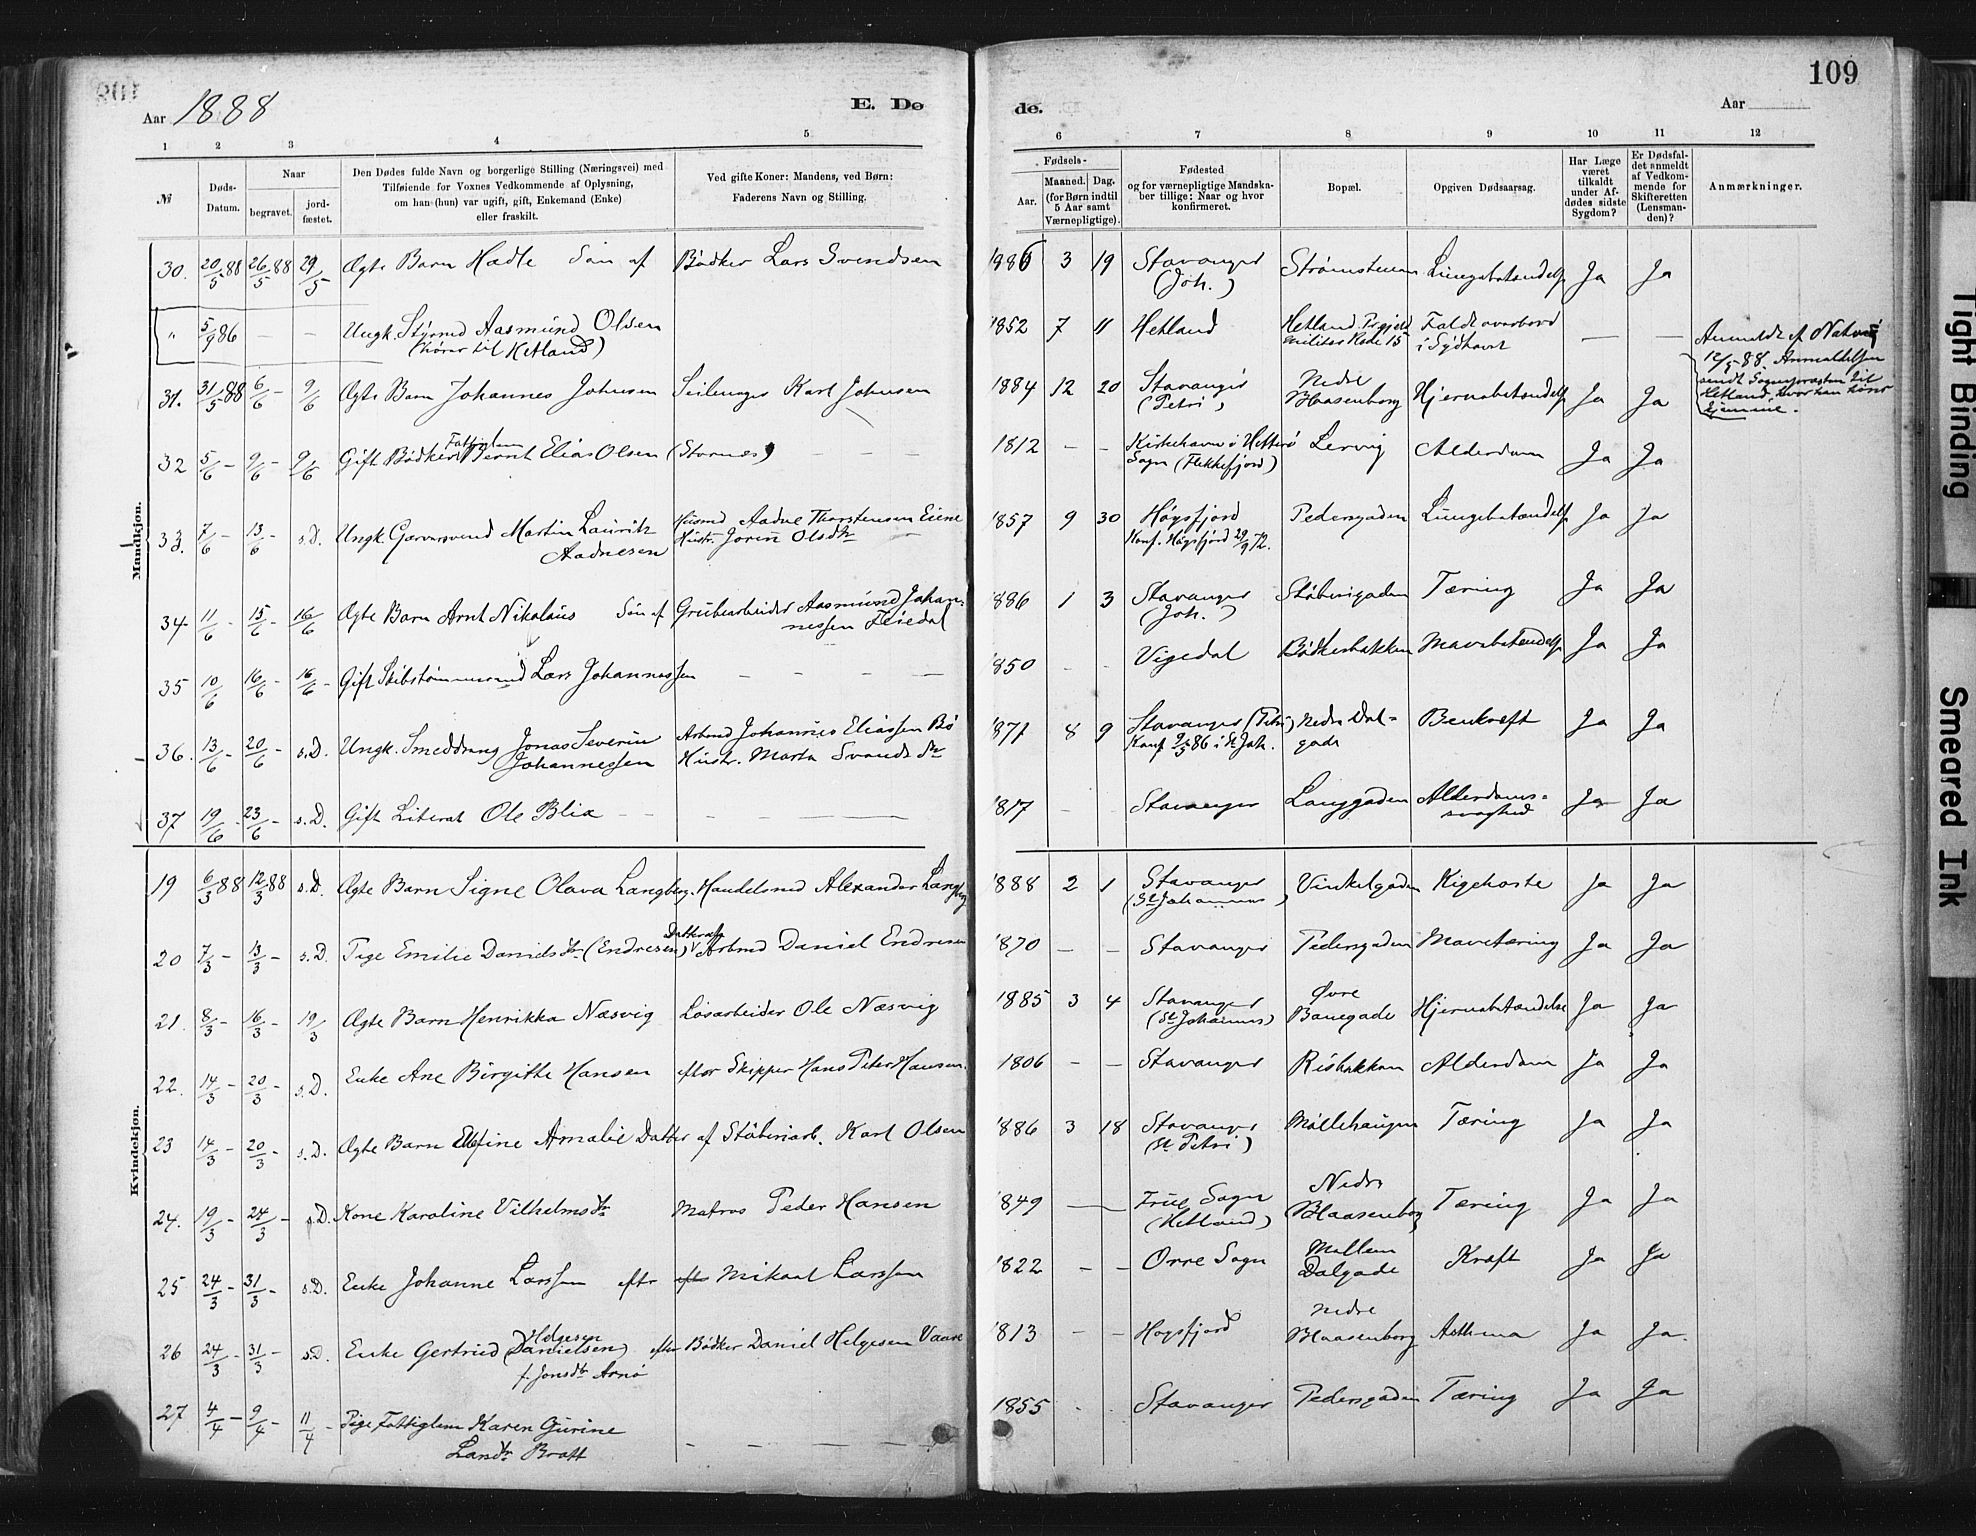 109
Aar 1888
E. Dø
de.
Aar
1 2 3 4 5 6 7 8 9 10 11 12
№
Døds-
Datum.
Naar
begravet.
jord-
fæstet.
Den Dødes fulde Navn og borgerlige Stilling (Næringsvei) med
Tilføiende for Voxnes Vedkommende af Oplysning,
om han (hun) var ugift, gift, Enkemand (Enke)
eller fraskilt.
Ved gifte Koner: Mandens, ved Børn:
Faderens Navn og Stilling.
Fødsels-
Aar.
Maaned. Dag.
(for Børn indtil
5 Aar samt
Værnepligtige).
Fødested
og for værnepligtige Mandska-
ber tillige: Naar og hvor
konfirmeret.
Bopæl.
Opgiven Dødsaarsag.
Har Læge
været
tilkaldt
under Af-
dødes sidste
Sygdom?
Er Dødsfal-
det anmeldt
af Vedkom-
mende for
Skifteretten
(Lensman-
den)?
Anmærkninger.
Mandkjøn.
30. 20/5 88 26/5 88 29/5 Ægte Barn Hædle Søn af Bødker Lars Svendsen 1886 3 19 Stavanger Strømstenen Lungebetændelse Ja Ja
(Joh.)
" 5/9 86 — — Ungk. Styrmd Aasmund Olsen 1852 7 11 Hetland Hetland Prgjeld Faldt overbord — —
(hører til Hetland) i Sydhavet
Anmeldt af
12/5 88. Anmeldelsen
sendt Sognepræsten til
Hetland, hvor han hører
hjemme.
31. 31/5 88 6/6 - 9/6 Ægte Barn Johannes Johnsen Seilmager Karl Johnsen 1884 12 20 Stavanger Nedre Hjernebetændelse Ja Ja
(Petri) Blaasenborg
32 5/6 - 9/6 - 9/6 Gift Bødker Fattiglem Bernt Elias Olsen (Stornæs) — — — 1812 — — Kirkehavn i Hitterø Lervig Alderdom Ja Ja
Sogn (Flekkefjord)
33. 7/6 - 13/6 - s.D. Ungk. Garversvend Martin Lauritz Husmd Aadne Thorstensen Eiene 1857 9 30 Høgsfjord Pedersgaden Lungebetændelse Ja Ja
Aadnesen Hustr. Jorin Olsdtr Konf. Høgsfjord 29/9 72.
34 11/6 - 15/6 - 16/6 Ægte Barn Arnt Nikolaus Søn af Grubearbeider Aasmund Johan- 1886 1 3 Stavanger Støberigaden Tæring Ja Ja
nessen (Joh.)
35 10/6 16/6 - 16/6 - Gift Skibstømmermand Lars Johannessen — — — — 1850 - - Vigedal Bødkerbakken Mavebetændelse Ja Ja
36. 13/6 - 20/6 - s.D. Ungk. Smeddreng Jonas Severin Arbmd Johannes Eliassen Bø 1871 8 9 Stavanger (Petri) Nedre Dal- Benkræft Ja Ja
Johannessen Hustr. Marta Svendsdtr Konf 9/5 86 i St Joh. gade
37 19/6 - 23/6 - s.D. Gift Literat Ole Blix — — — — 1817 - Stavanger Langgaden Alderdoms- Ja Ja
svaghed
Kvindekjøn.
19 6/3 88 12/3 88 s.D. Ægte Barn Signe Olava Langberg. Handelsmd Alexander Langberg 1888 2 1 Stavanger Vinkelgaden Kighoste Ja Ja
(St Johannes)
20 7/3 - 13/3 - s.D. Pige Emilie Danielsdtr (Endresen) Datter af Arbmd Daniel Endresen 1870 — — Stavanger Pedersgaden Mavetæring Ja Ja
21. 8/3 - 16/3 - 19/3 Ægte Barn Henrikka Næsvig Løsarbeider Ole Næsvig 1885 3 4 Stavanger Øvre Hjernebetændelse Ja Ja
(St Johannes) Banegade
22. 14/3 - 20/3 - s.D. Enke Ane Birgitte Hansen efter Skipper Hans Peter Hansen. 1806 — — Stavanger Risbakken Alderdom Ja Ja
23 14/3 - 20/3 - s.D. Ægte Barn Elfine Amalie Datter af Støberiarb. Karl Olsen 1886 3 18 Stavanger Møllehaugen Tæring Ja Ja
(St Petri)
24. 19/3 - 24/3 - s.D. Kone Karoline Vilhelmsdtr Matros Peder Hansen 1849 — — Frue Sogn Nedre Tæring Ja Ja
(Hetland) Blaasenborg
25 24/3 - 31/3 - s.D. Enke Johanne Larssen efter efter Mikael Larssen 1822 - - Orre Sogn Mellem Kræft Ja Ja
Dalgade
26 24/3 - 31/3 - s.D. Enke Gertrud Helgesen (Danielsen) efter Bødker Daniel Helgesen 1813 - - Høgsfjord Nedre Asthma Ja Ja.
f. Jonsdtr Arnø Blaasenborg
27 4/4 - 9/4 - 11/4 Pige Fattiglem Karen Gurine 1855 - - Stavanger Pedersgaden Tæring Ja Ja
Larsdtr Bratt — — — —
Tight Binding
Smeared Ink